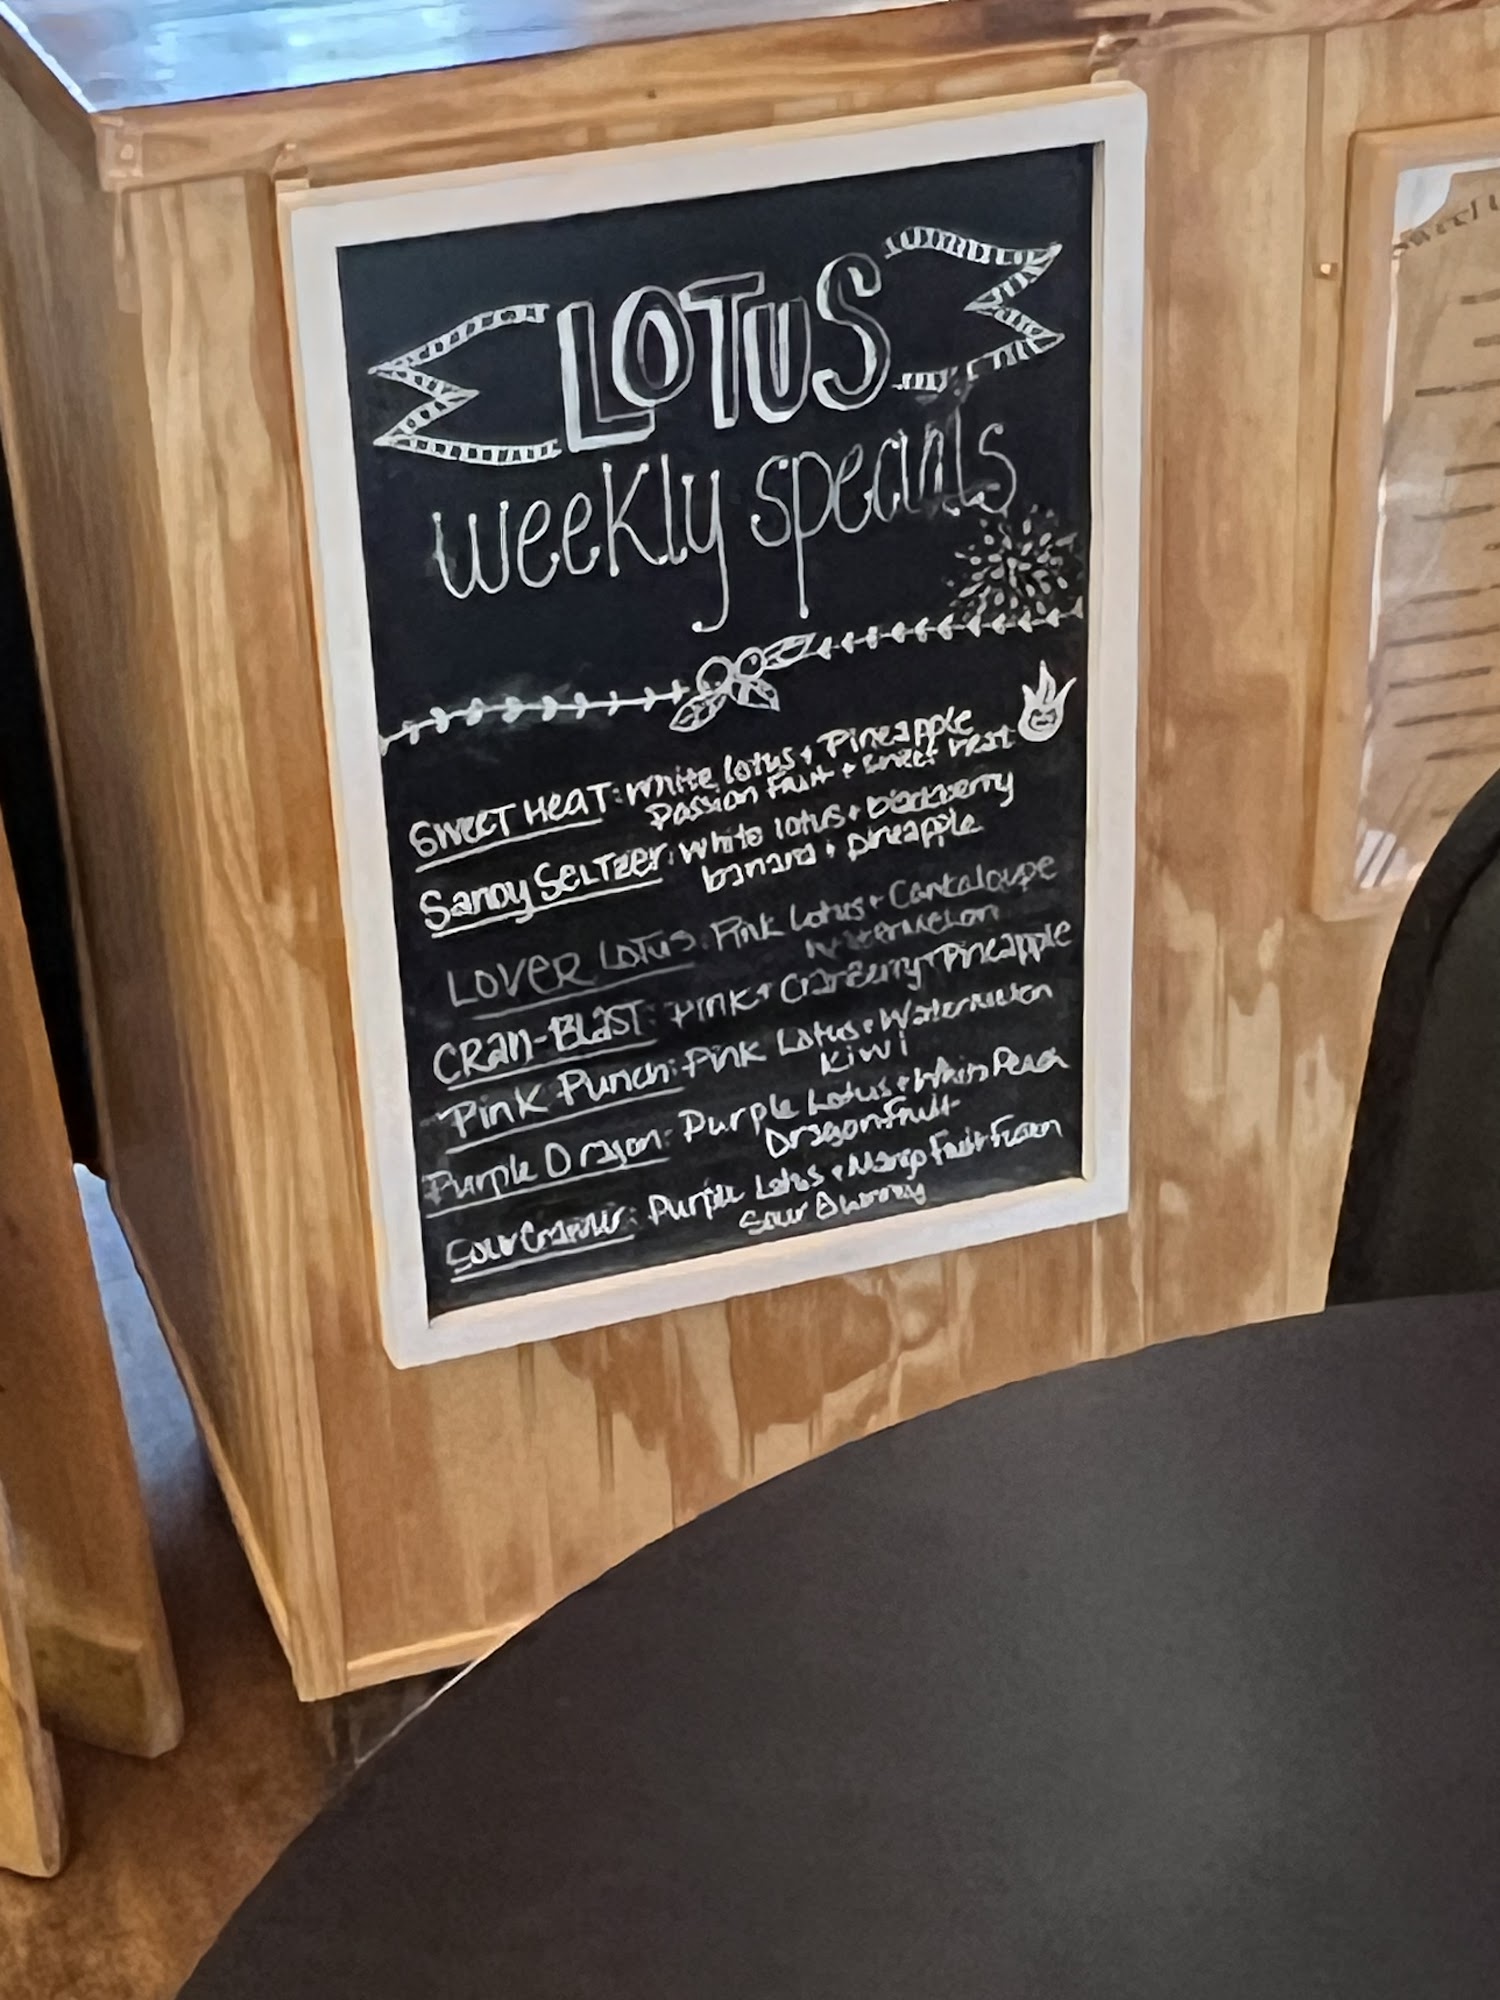 LOTUS
weekly specials
SWEET HEAT: White lotus + Pineapple
Passion Fruit + sweet heat
Sandy SELTzer: White lotus + blackberry
banana + pineapple
LOVER LOTUS: Pink Lotus + Cantaloupe
Watermelon
CRAN-BLAST: Pink + Cranberry + Pineapple
Pink Punch: Pink Lotus + Watermelon
Kiwi
Purple Dragon: Purple Lotus + Peach
Dragonfruit
Sour: Purple Lotus + Mango
Sour
Sweet